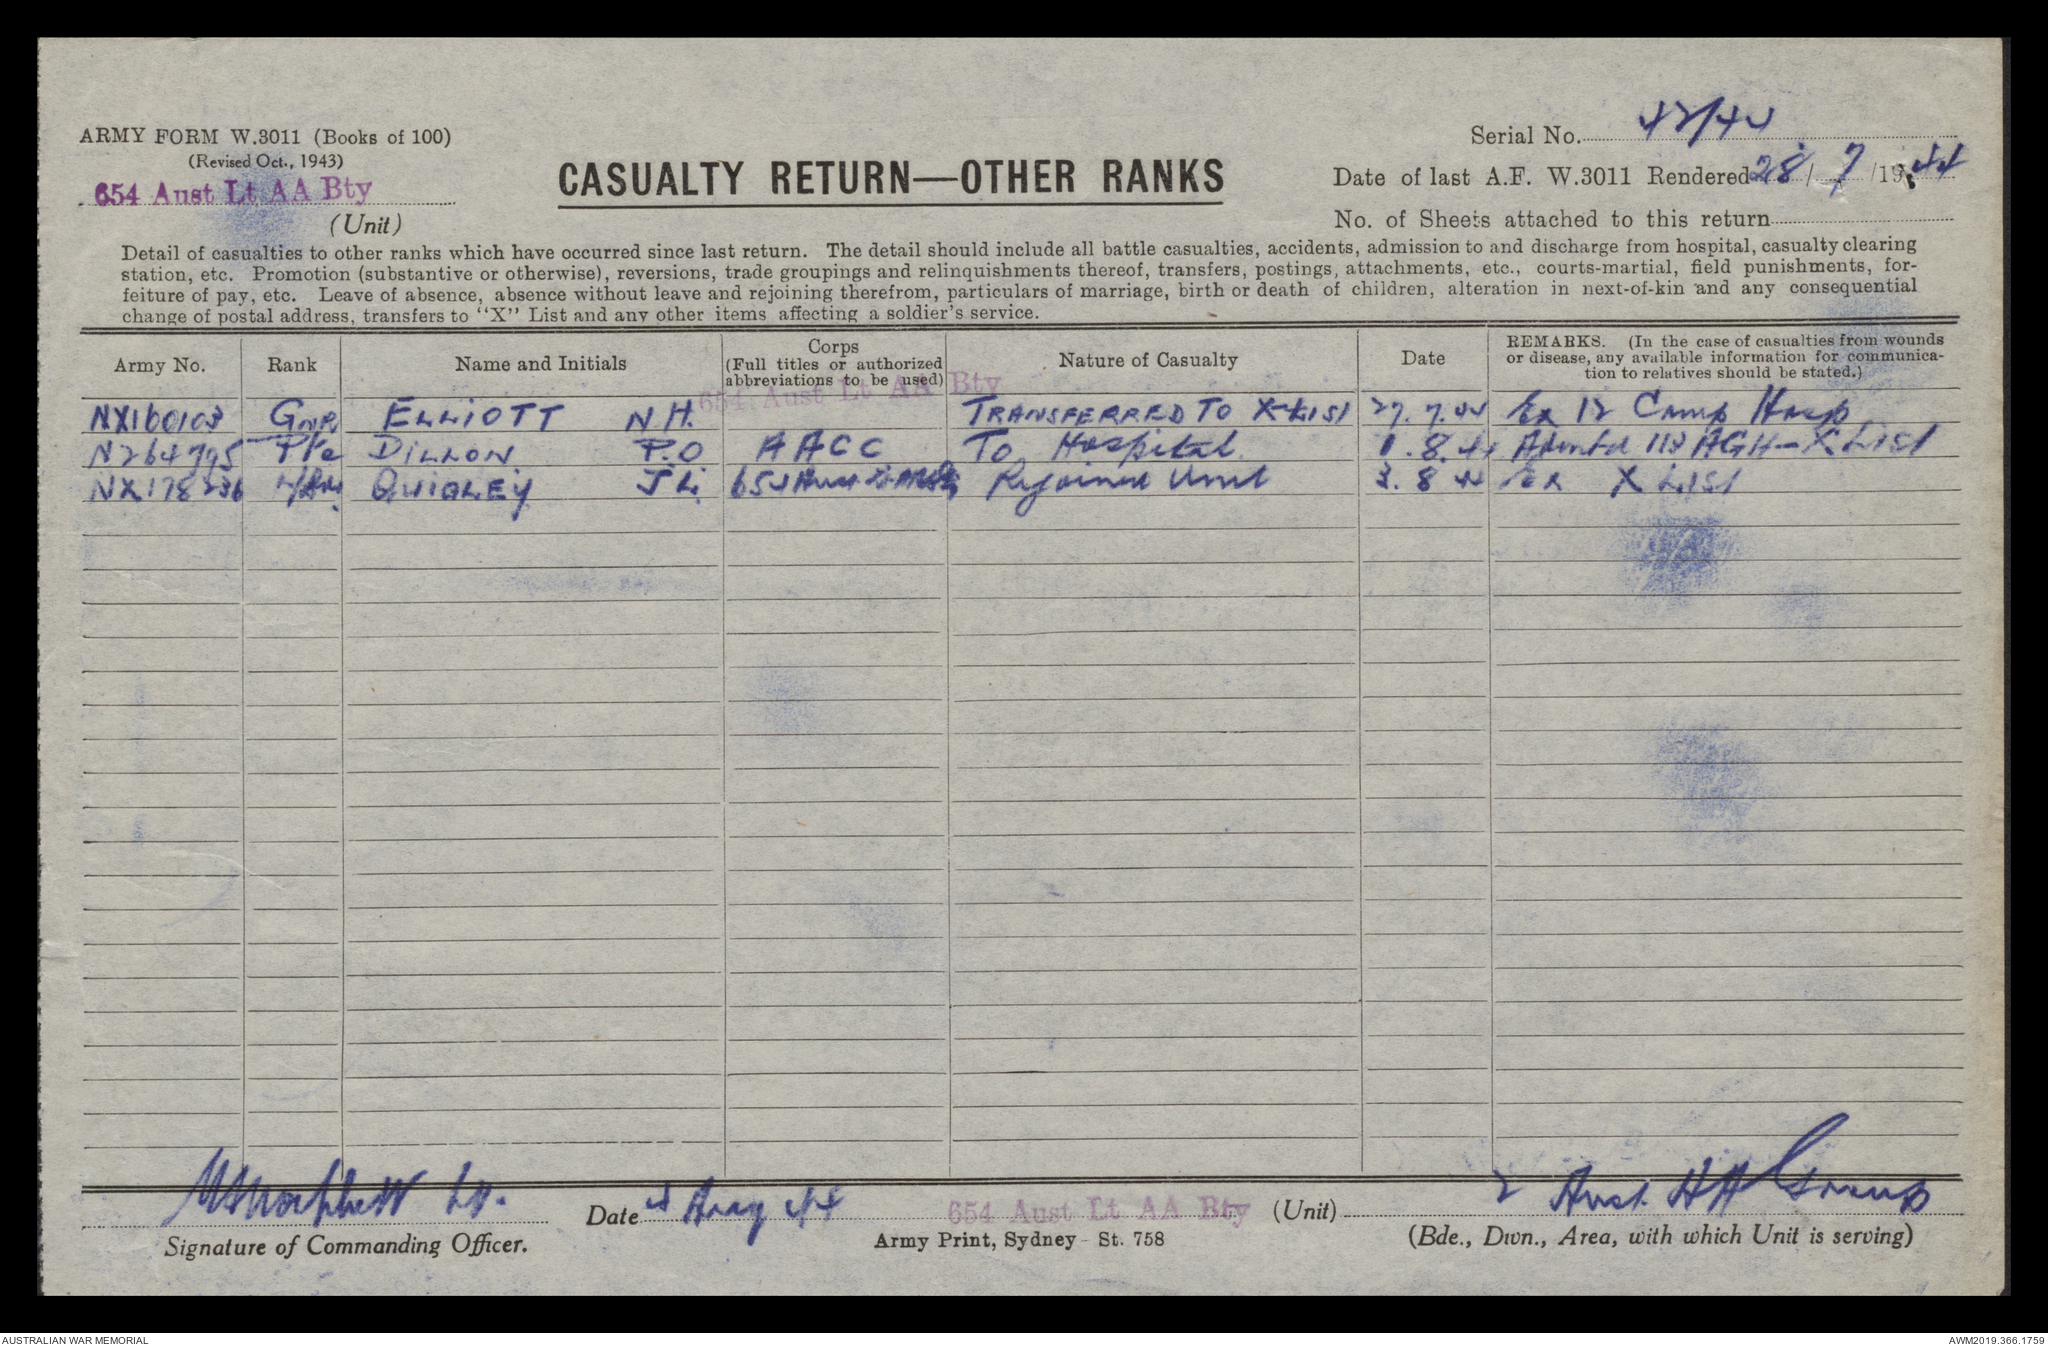 ARMY FORM W.3011 (Books of 100)
(Revised Oct., 1943)
654 Aust Lt AA Bty
(Unit)
CASUALTY RETURN—OTHER RANKS
Serial No. 42/44
Date of last A.F. W.3011 Rendered 28/7/1944
No. of Sheets attached to this return
Detail of casualties to other ranks which have occurred since last return. The detail should include all battle casualties, accidents, admission to and discharge from hospital, casualty clearing
station, etc. Promotion (substantive or otherwise), reversions, trade groupings and relinquishments thereof, transfers, postings, attachments, etc., courts-martial, field punishments, for-
feiture of pay, etc. Leave of absence, absence without leave and rejoining therefrom, particulars of marriage, birth or death of children, alteration in next-of-kin and any consequential
change of postal address, transfers to "X" List and any other items affecting a soldier's service.
Army No. Rank Name and Initials Corps (Full titles or authorized abbreviations to be used) Nature of Casualty Date REMARKS. (In the case of casualties from wounds or disease, any available information for communica-tion to relatives should be stated.)
654 Aust Lt AA Bty
NX160103 Gnr ELLIOTT N.H. TRANSFERRED TO X-LIST 27.7.44 Ex 12 Camp Hosp
N264795 Pte DILLON P.O AACC To Hospital 1.8.44 113 AGH - X LIST
NX178236 L/Bdr QUIGLEY J L. 654 Aust Lt AA Bty Rejoined Unit 3.8.44 Ex X LIST
Lt.
Signature of Commanding Officer.
Date 4 Aug 44
654 Aust Lt AA Bty (Unit)
Army Print, Sydney - St. 758
2 Aust AA Group
(Bde., Divn., Area, with which Unit is serving)
AUSTRALIAN WAR MEMORIAL
AWM2019.366.1759